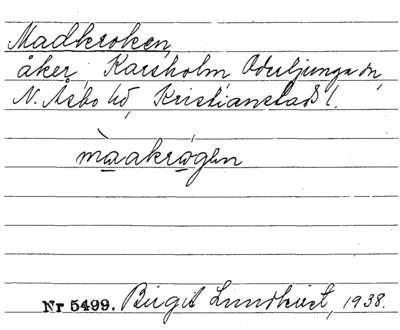 Madkroken,
åker, Karsholm, Oderljunga sn,
N. Åsbo hd, Kristianstads l.
màakrågen
Nr 5499. Birgit Lundkvist, 1938.